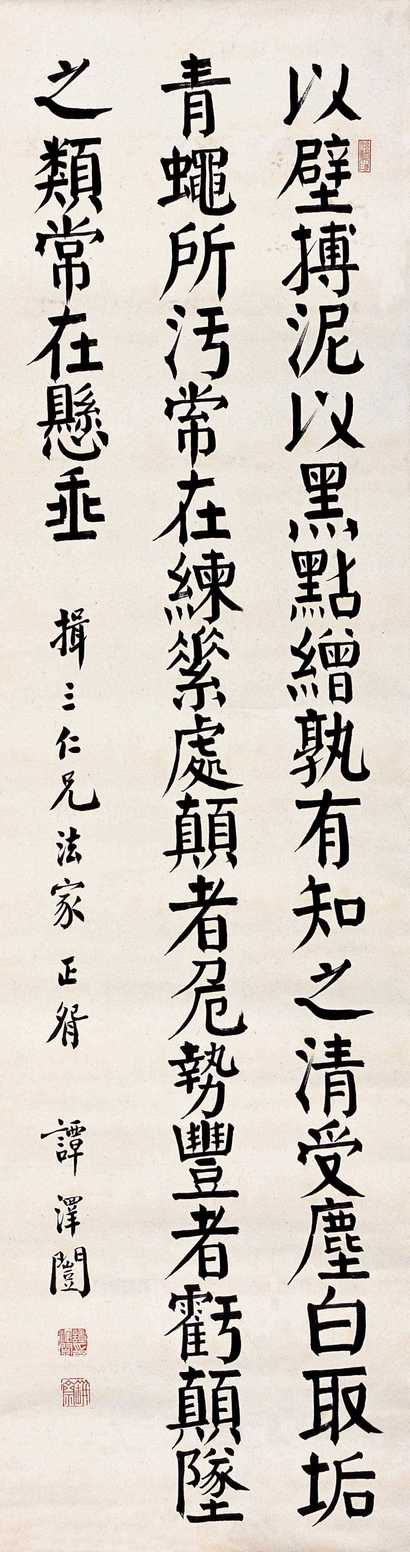 以壁搏泥以黑點繒孰有知之清受塵白取垢
青蠅所汚常在練素處顛者危勢豐者虧顛墜
之類常在懸垂
揖三仁兄法家正腎 譚澤闓